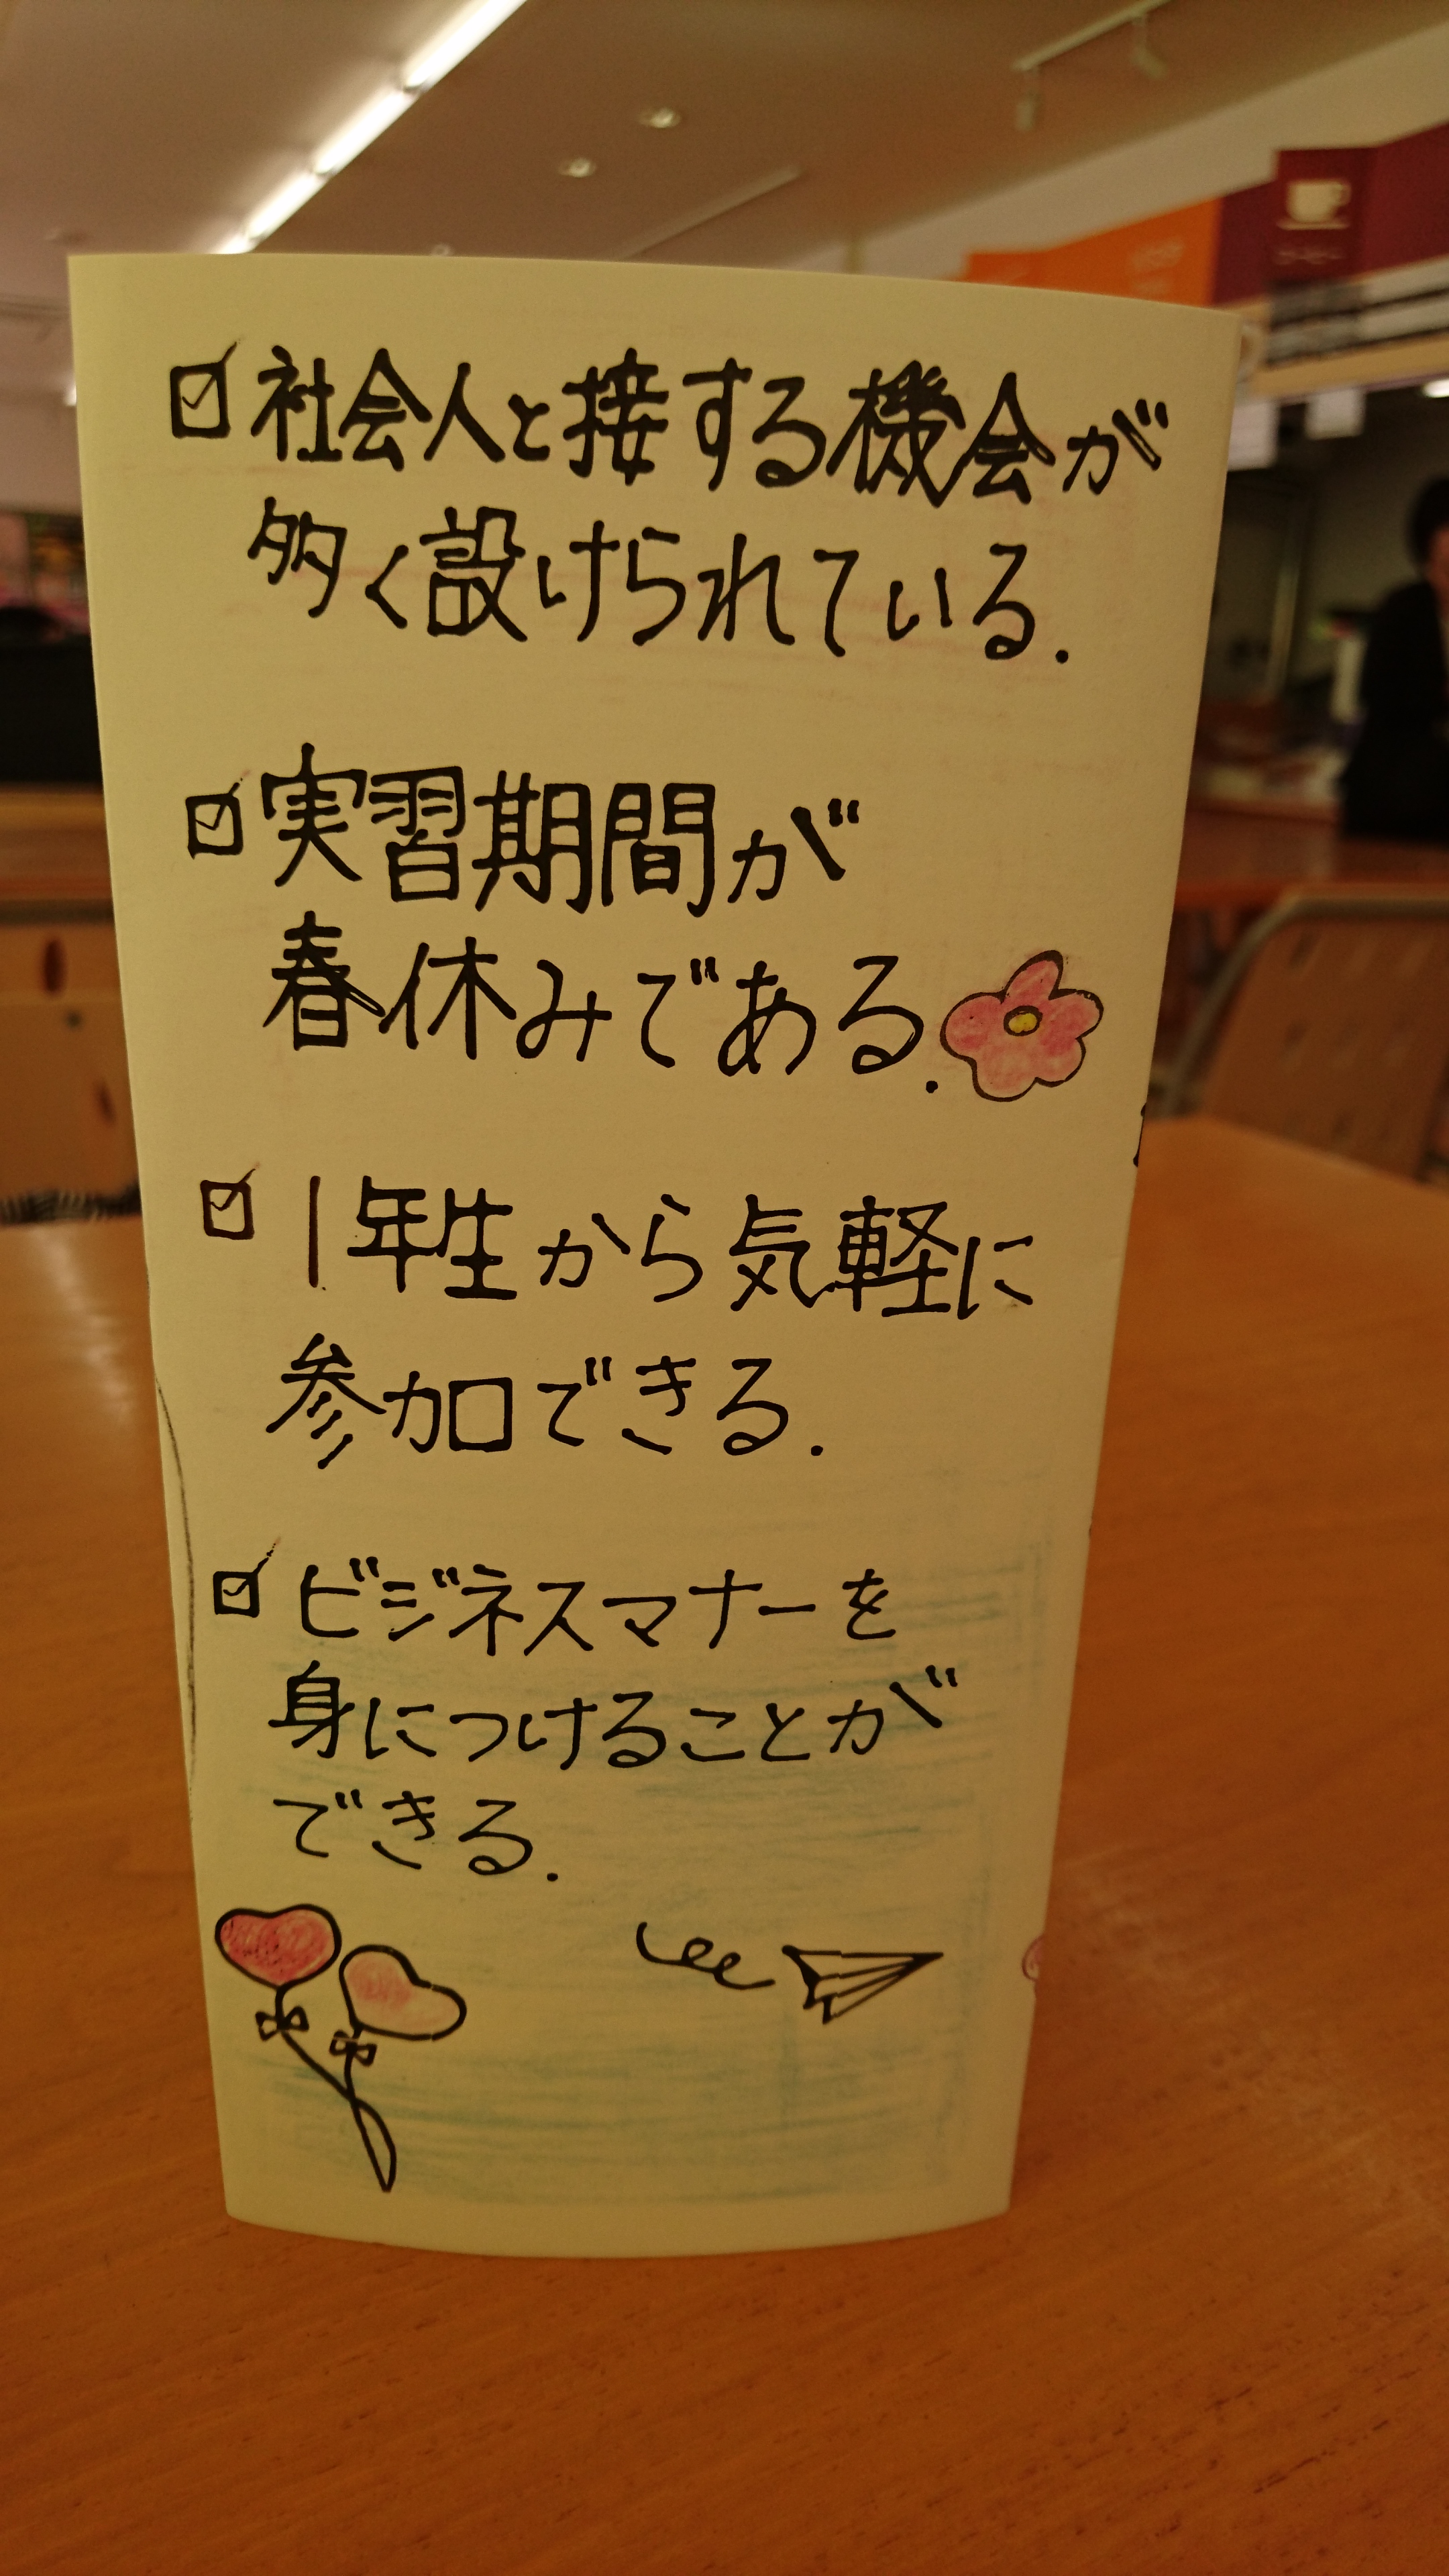 ☑社会人と接する機会が
多く設けられている.
☑実習期間が
春休みである.
☑1年生から気軽に
参加できる.
☑ビジネスマナーを
身につけることが
できる.